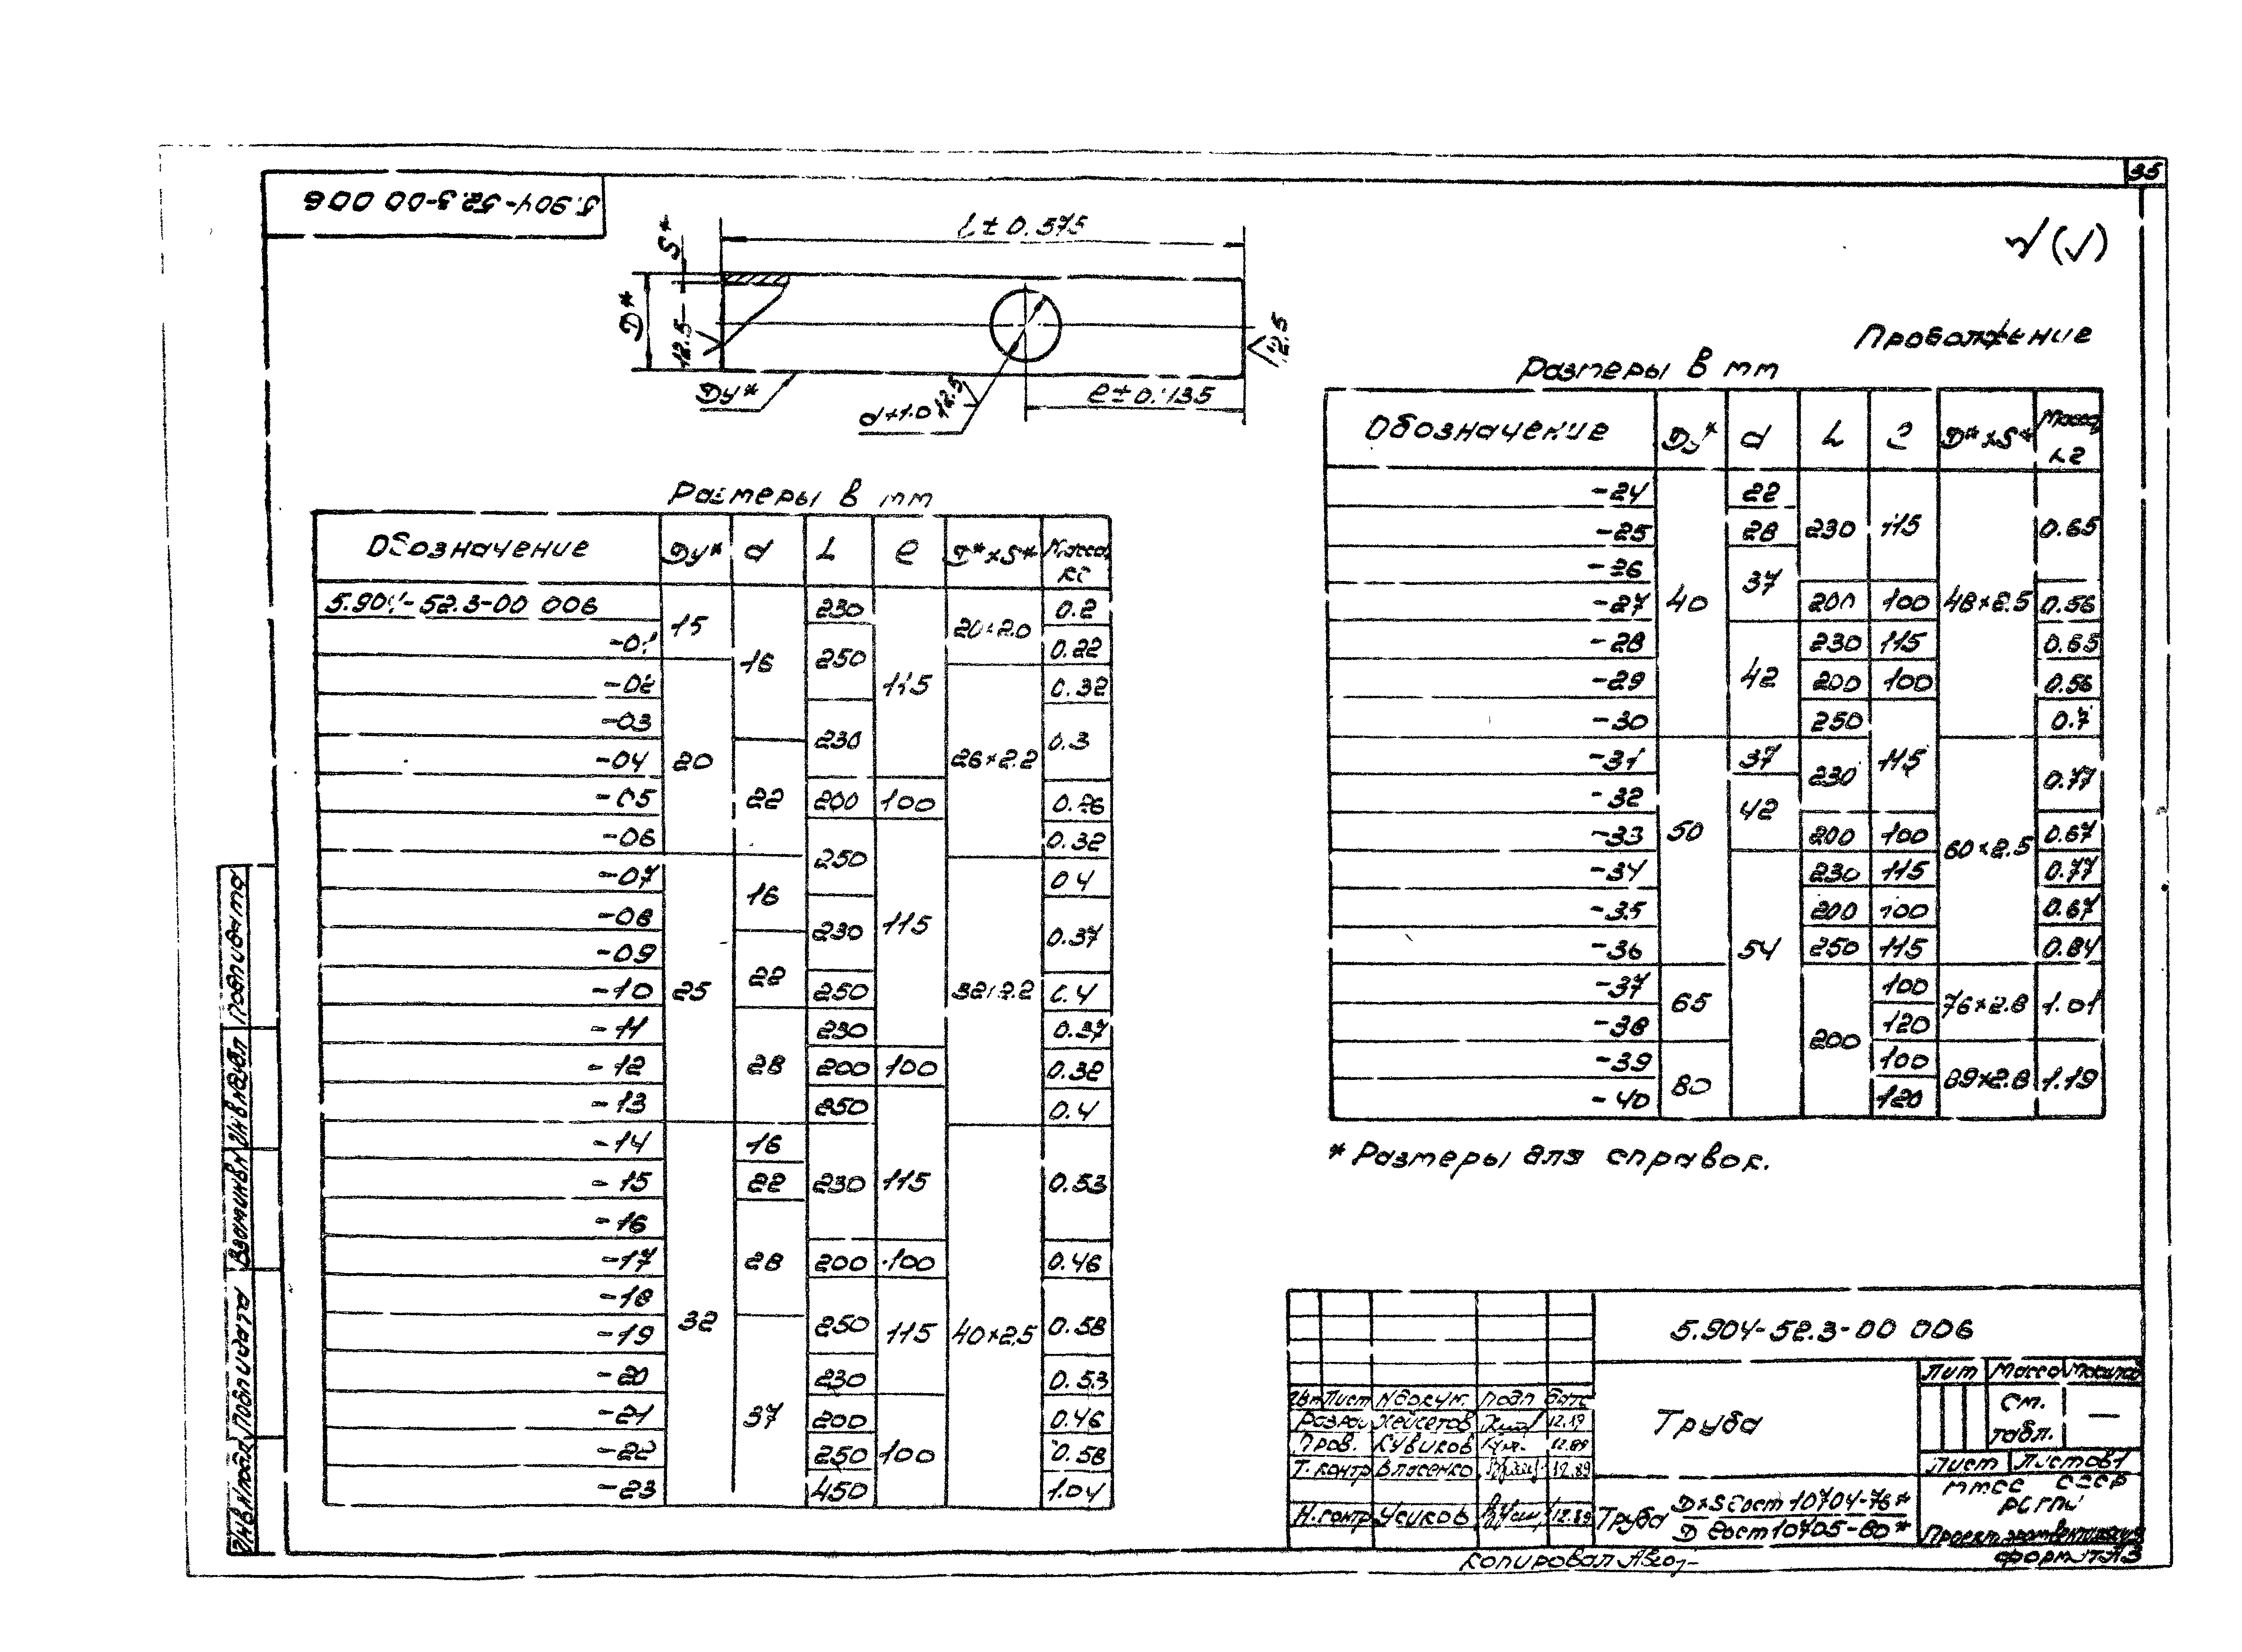 35
5.904-52.3-00 006
L±0.575
S*
D*
12.5
Dу*
d±1.0
12.5
e±0.135
12.5
√(√)
Размеры в мм
Обозначение Dу* d L e D*×S* Масса, кг
5.904-52.3-00 006 15 16 230 115 20×2.0 0.2
-01 250 0.22
-02 20 26×2.2 0.32
-03 230 0.3
-04 22
-05 200 100 0.26
-06 250 115 0.32
-07 25 16 32×2.2 0.4
-08 230 0.37
-09 22
-10 250 0.4
-11 28 230 0.37
-12 200 100 0.32
-13 250 115 0.4
-14 32 16 230 40×2.5 0.53
-15 22
-16 28
-17 200 100 0.46
-18 250 115 0.58
-19 37
-20 230 0.53
-21 200 100 0.46
-22 250 0.58
-23 450 1.04
Продолжение
Размеры в мм
Обозначение Dу* d L e D*×S* Масса, кг
-24 40 22 230 115 48×2.5 0.65
-25 28
-26 37
-27 200 100 0.56
-28 42 230 115 0.65
-29 200 100 0.56
-30 250 115 0.7
-31 50 37 230 60×2.5 0.77
-32 42
-33 200 100 0.67
-34 54 230 115 0.77
-35 200 100 0.67
-36 250 115 0.84
-37 65 200 100 76×2.8 1.01
-38 120
-39 80 100 89×2.8 1.19
-40 120
* Размеры для справок.
5.904-52.3-00 006
Лит Масса Масштаб
Изм Лист № докум. Подп Дата
Труба
См. табл. —
Разраб 12.89
Пров. Кувиков 12.89
Т. контр Власенко 12.89
Лист Листов 1
Н. контр Усиков 12.89
Труба D×S Гост 10704-76*
D Гост 10705-80*
ММСС СССР
Копировал
Формат А3
Инв.№ подл. Подп и дата Взам инв № Инв № дубл Подп и дата